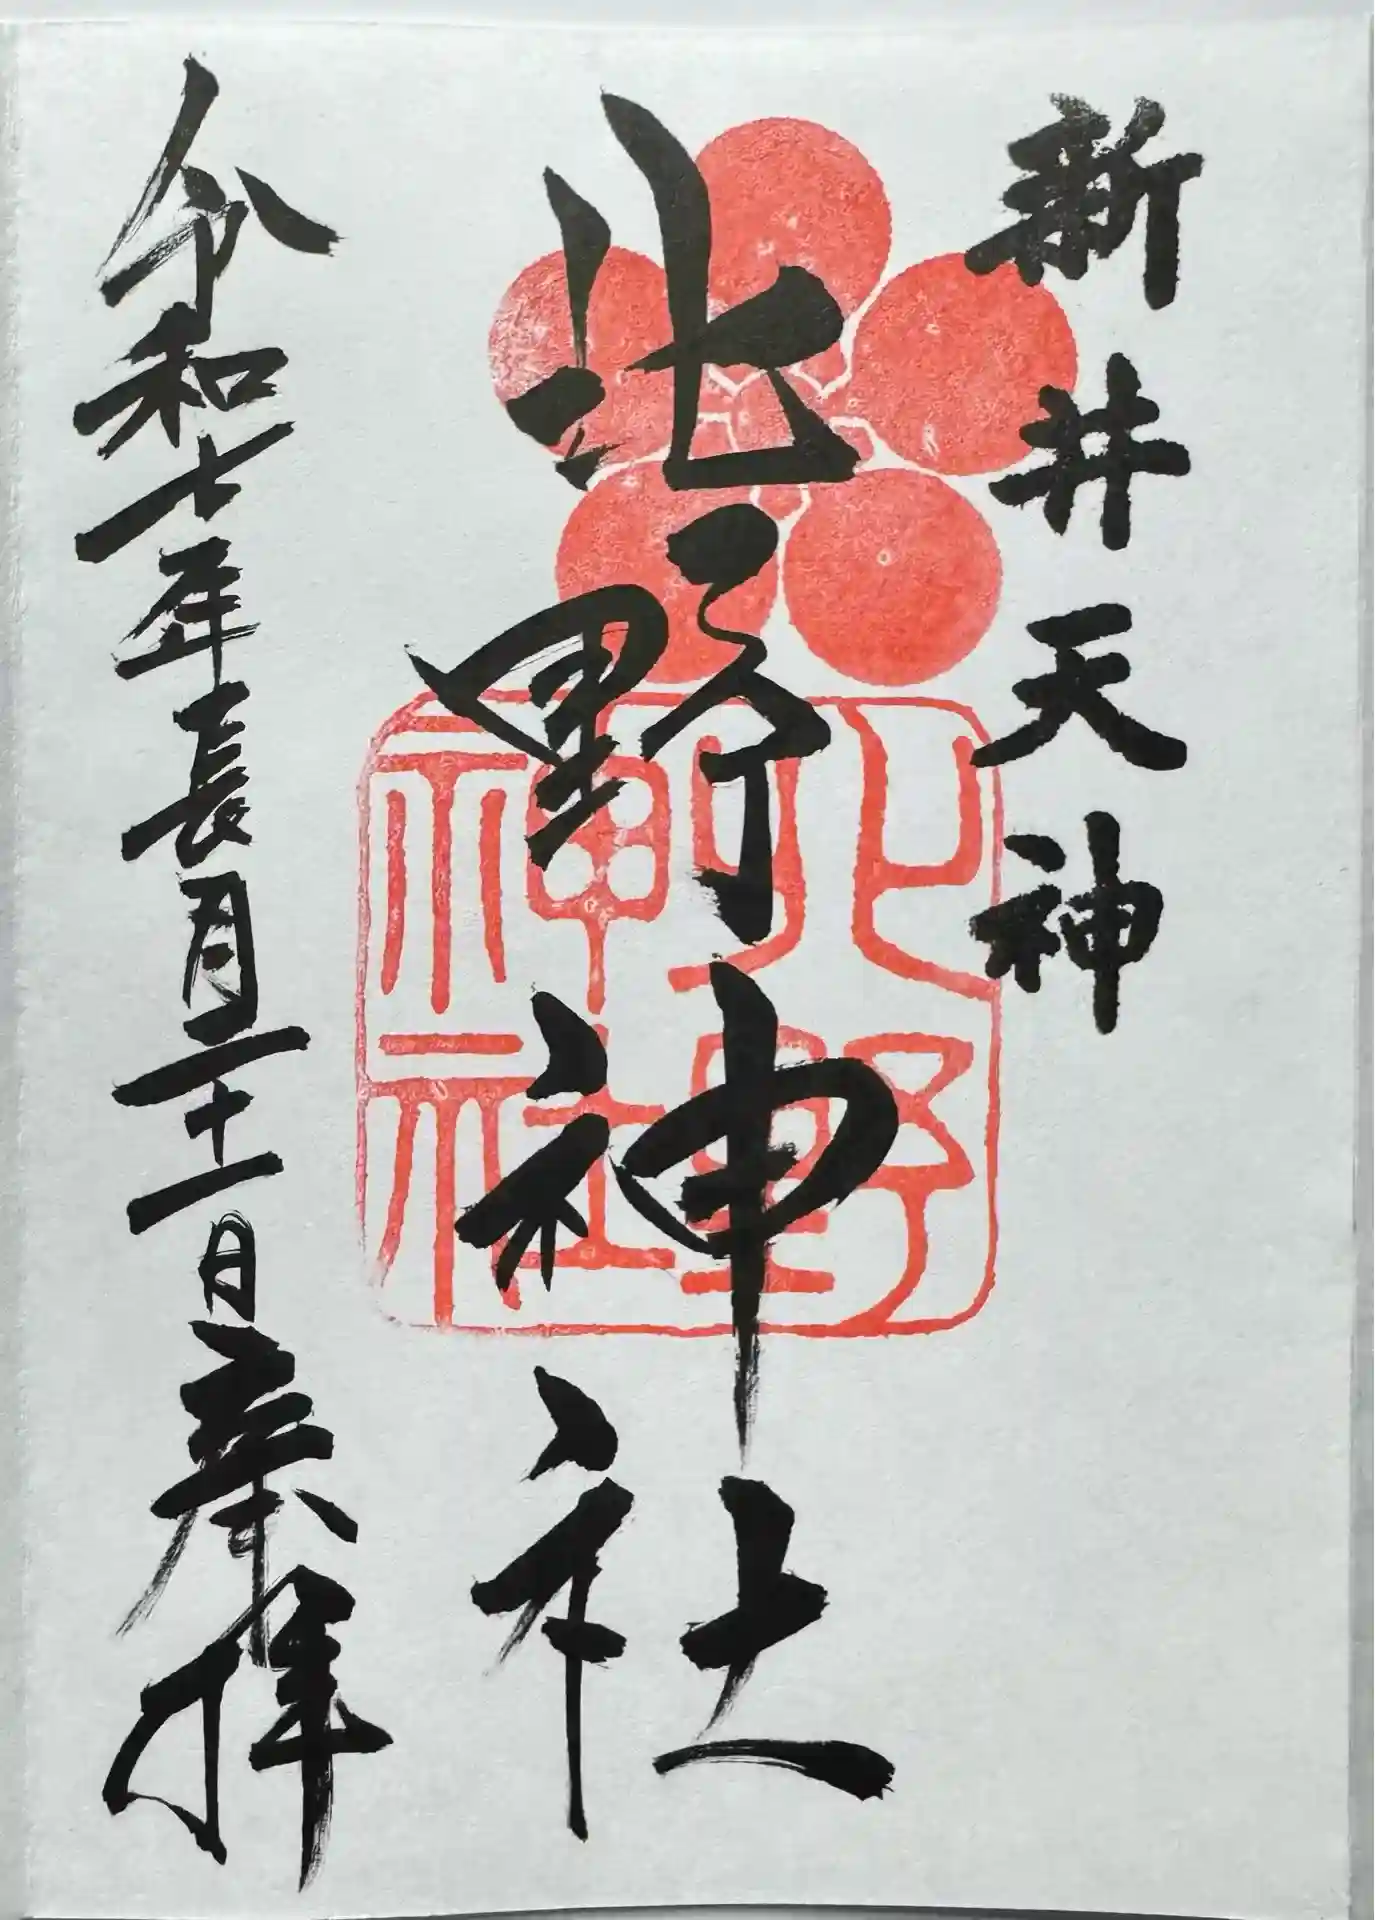 新井天神
北野神社
北野神社
令和七年長月二十一日奉拝